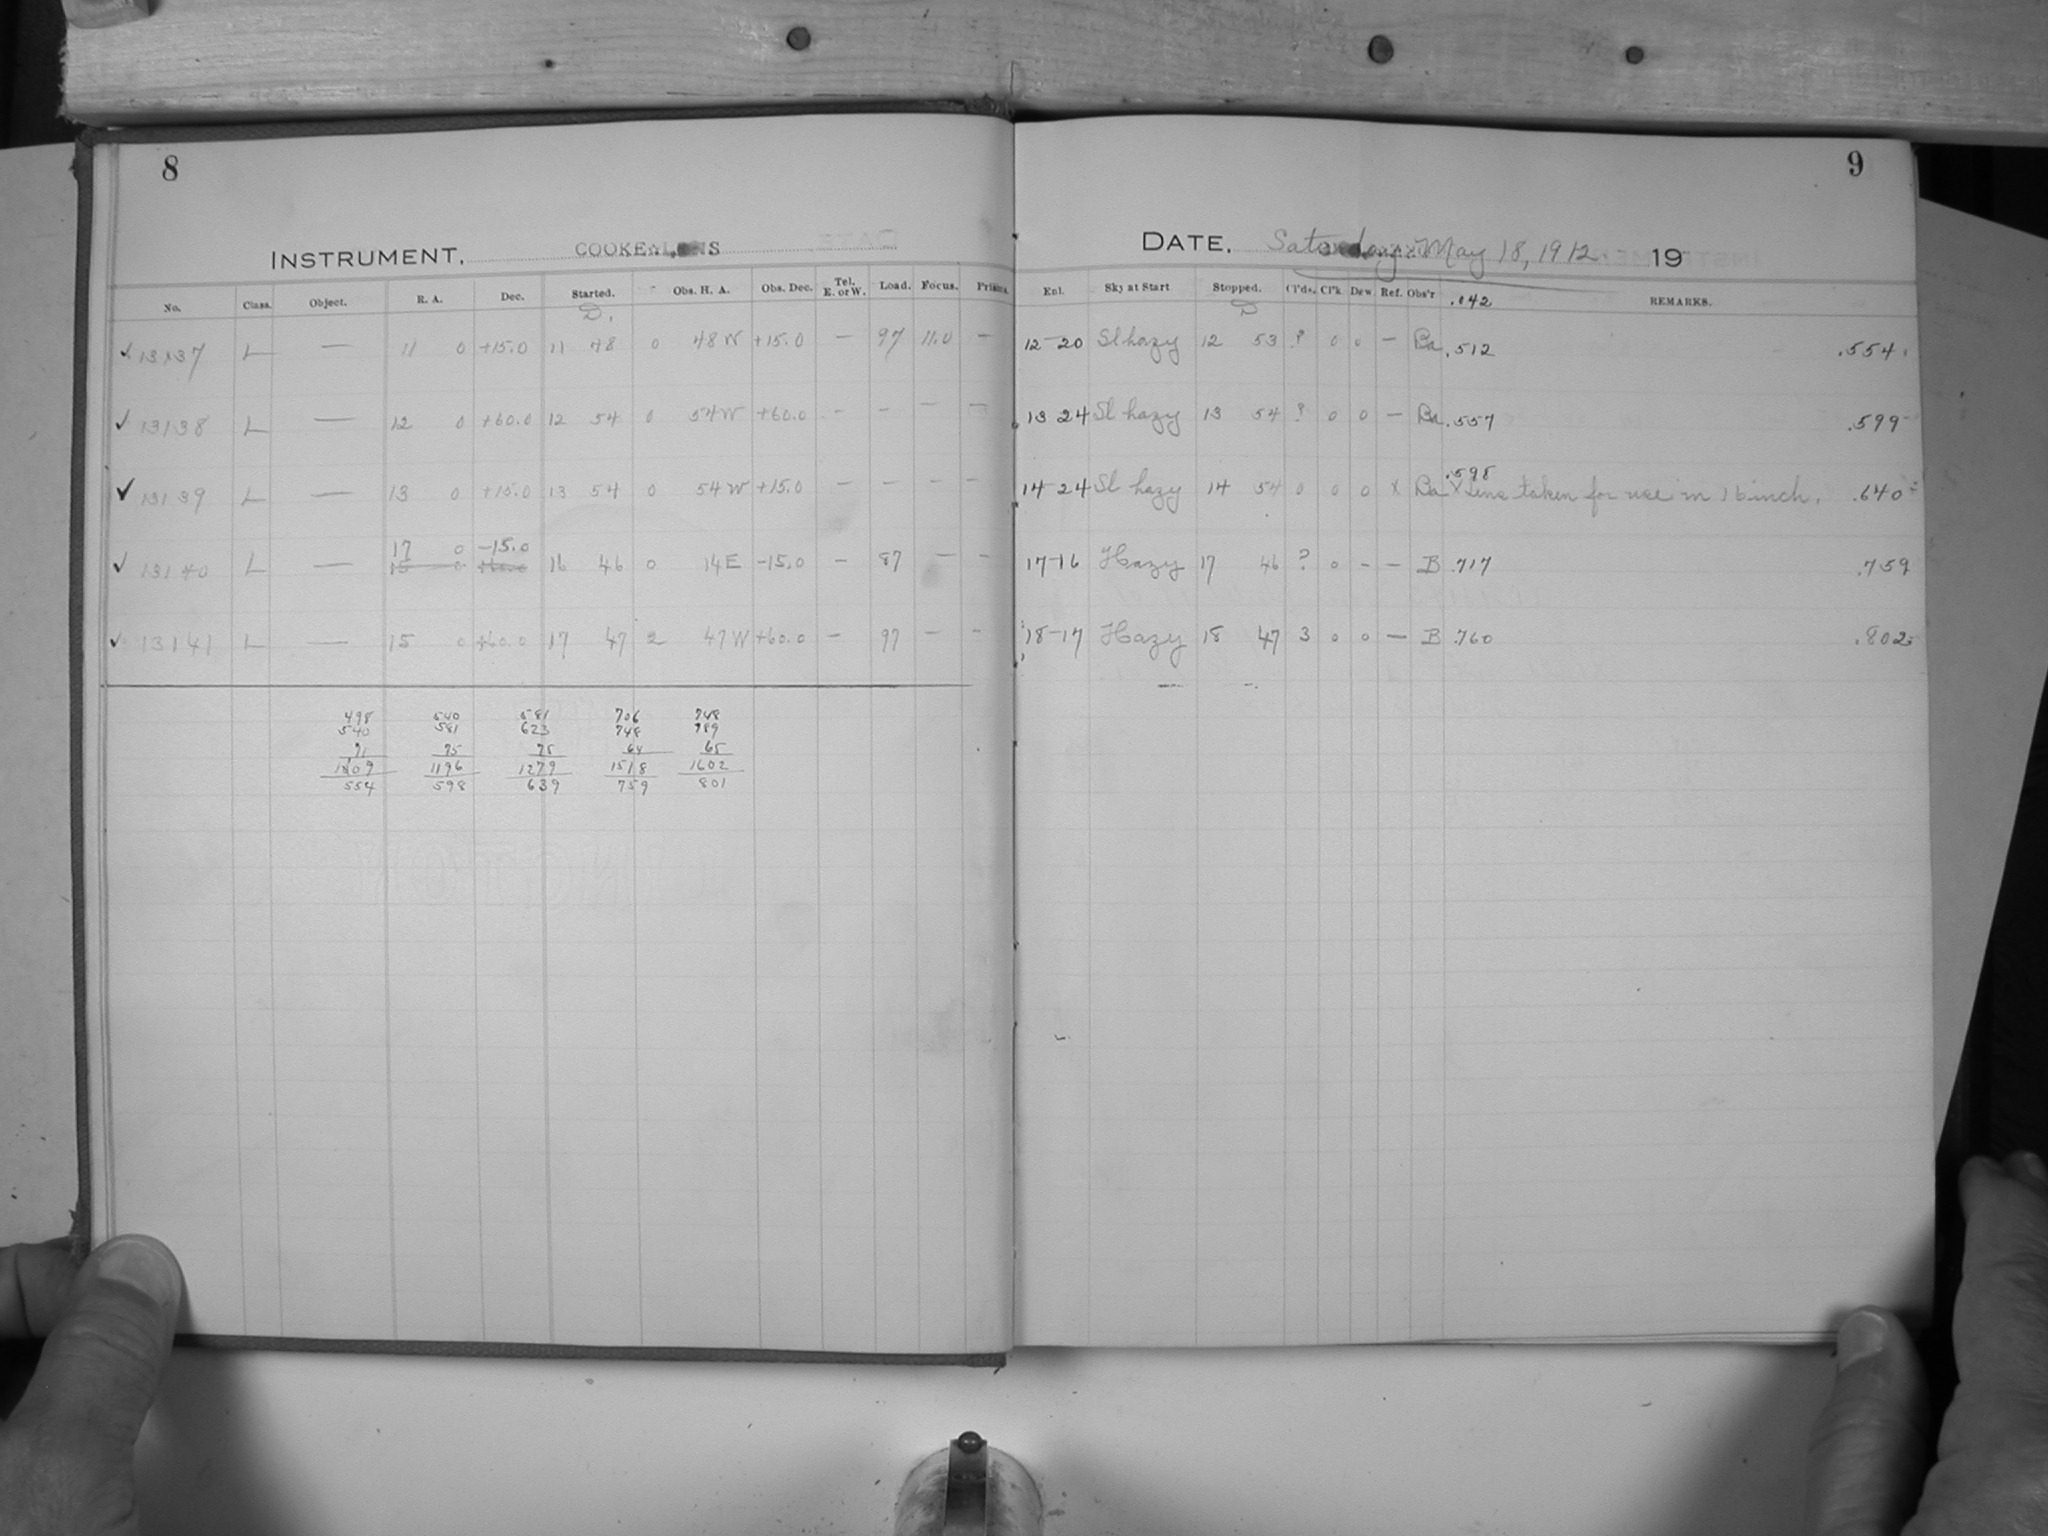 8
INSTRUMENT, COOKE LENS
No. Class. Object. R. A. Dec. Started. Obs. H. A. Obs. Dec. Tel. E. or W. Load. Focus. Prisms.
D.
✓ 13137 L — 11 0 +15.0 11 48 0 48 W +15.0 — 97 11.0 —
✓ 13138 L — 12 0 +60.0 12 54 0 54 W +60.0 - - — —
✓ 13139 L — 13 0 +15.0 13 54 0 54 W +15.0 - - - -
17 0 -15.0
✓ 13140 L — 15 0 +60.0 16 46 0 14 E -15.0 — 87 — -
✓ 13141 L — 15 0 +60.0 17 47 2 47 W +60.0 — 97 — -
498 540 581 706 748
540 581 623 748 789
71 75 75 64 65
1109 1196 1279 1518 1602
554 598 639 759 801
9
DATE, Saturday, May 18, 1912 19
Exl. Sky at Start Stopped. Cl'ds. Cl'k Dew Ref. Obs'r .042 REMARKS.
D
12-20 Sl hazy 12 53 ? 0 0 — Ba .512 .554
13 24 Sl hazy 13 54 ? 0 0 — Ba .557 .599
.598
14-24 Sl hazy 14 54 0 0 0 X Ba X Lens taken for use in 16 inch. .640
17-16 Hazy 17 46 ? 0 - - B .717 .759
18-17 Hazy 18 47 3 0 0 — B .760 .802